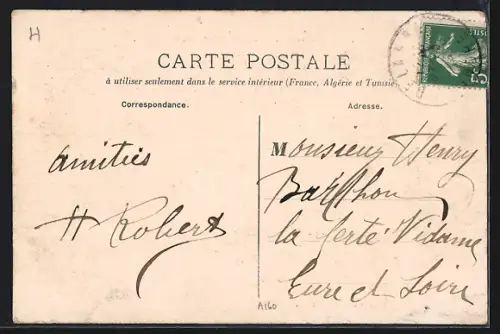 H
CARTE POSTALE
à utiliser seulement dans le service intérieur (France, Algérie et Tunisie
Correspondance.
Adresse.
amitiés
H Robert
Monsieur Henry
la ferté Vidame
Eure et Loire
A160